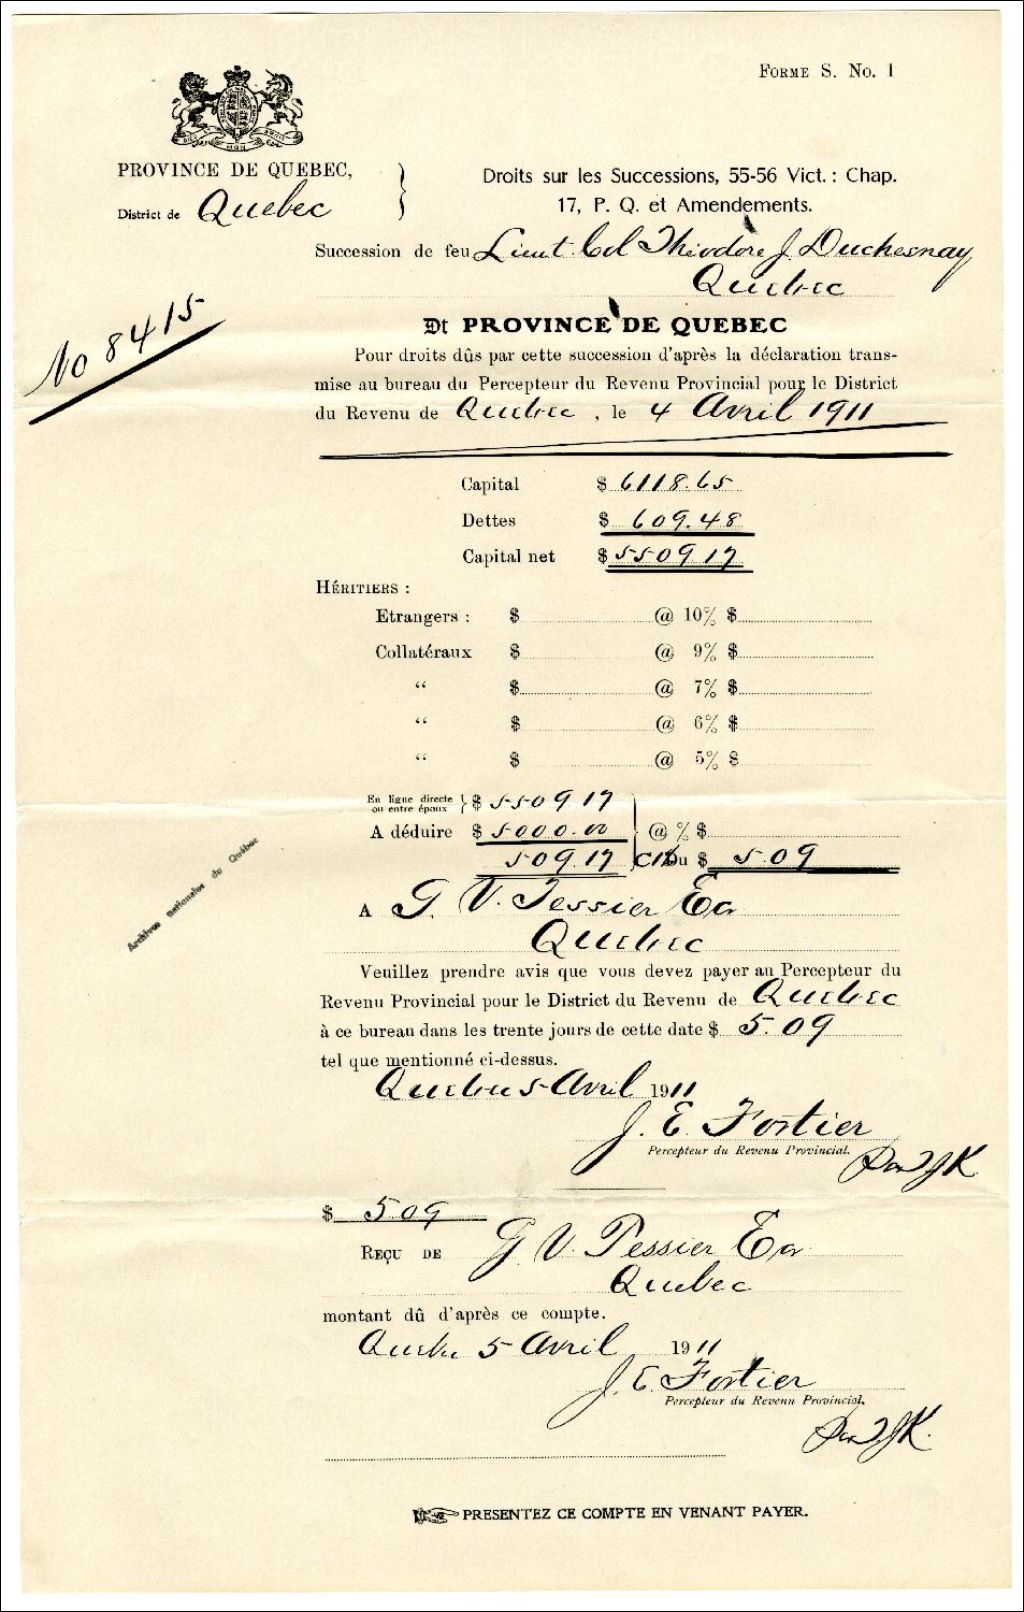 Forme S. No. 1
PROVINCE DE QUEBEC,
District de Quebec
Droits sur les Successions, 55-56 Vict. : Chap.
17, P. Q. et Amendements.
Succession de feu Lieut. Col Théodore J. Duchesnay
Quebec
No 8415
Dt PROVINCE DE QUEBEC
Pour droits dûs par cette succession d'après la déclaration trans-
mise au bureau du Percepteur du Revenu Provincial pour le District
du Revenu de Quebec , le 4 Avril 1911
Capital $ 6118.65
Dettes $ 609.48
Capital net $ 5509 17
Héritiers :
Etrangers : $ @ 10% $
Collatéraux $ @ 9% $
“ $ @ 7% $
“ $ @ 6% $
“ $ @ 5% $
En ligne directe
ou entre époux } $ 5509 17
A déduire $ 5000.00 @ % $
509.17 Dû $ 5.09
Archives nationales du Québec
A G. V. Tessier Er
Quebec
Veuillez prendre avis que vous devez payer au Percepteur du
Revenu Provincial pour le District du Revenu de Quebec
à ce bureau dans les trente jours de cette date $ 5.09
tel que mentionné ci-dessus.
Quebec 5 Avril 1911
J. E. Fortier
Percepteur du Revenu Provincial.
Par JK
$ 5.09
Reçu de G. V. Tessier Er
Quebec
montant dû d'après ce compte.
Quebec 5 Avril 1911
J. E. Fortier
Percepteur du Revenu Provincial.
Par JK.
PRESENTEZ CE COMPTE EN VENANT PAYER.